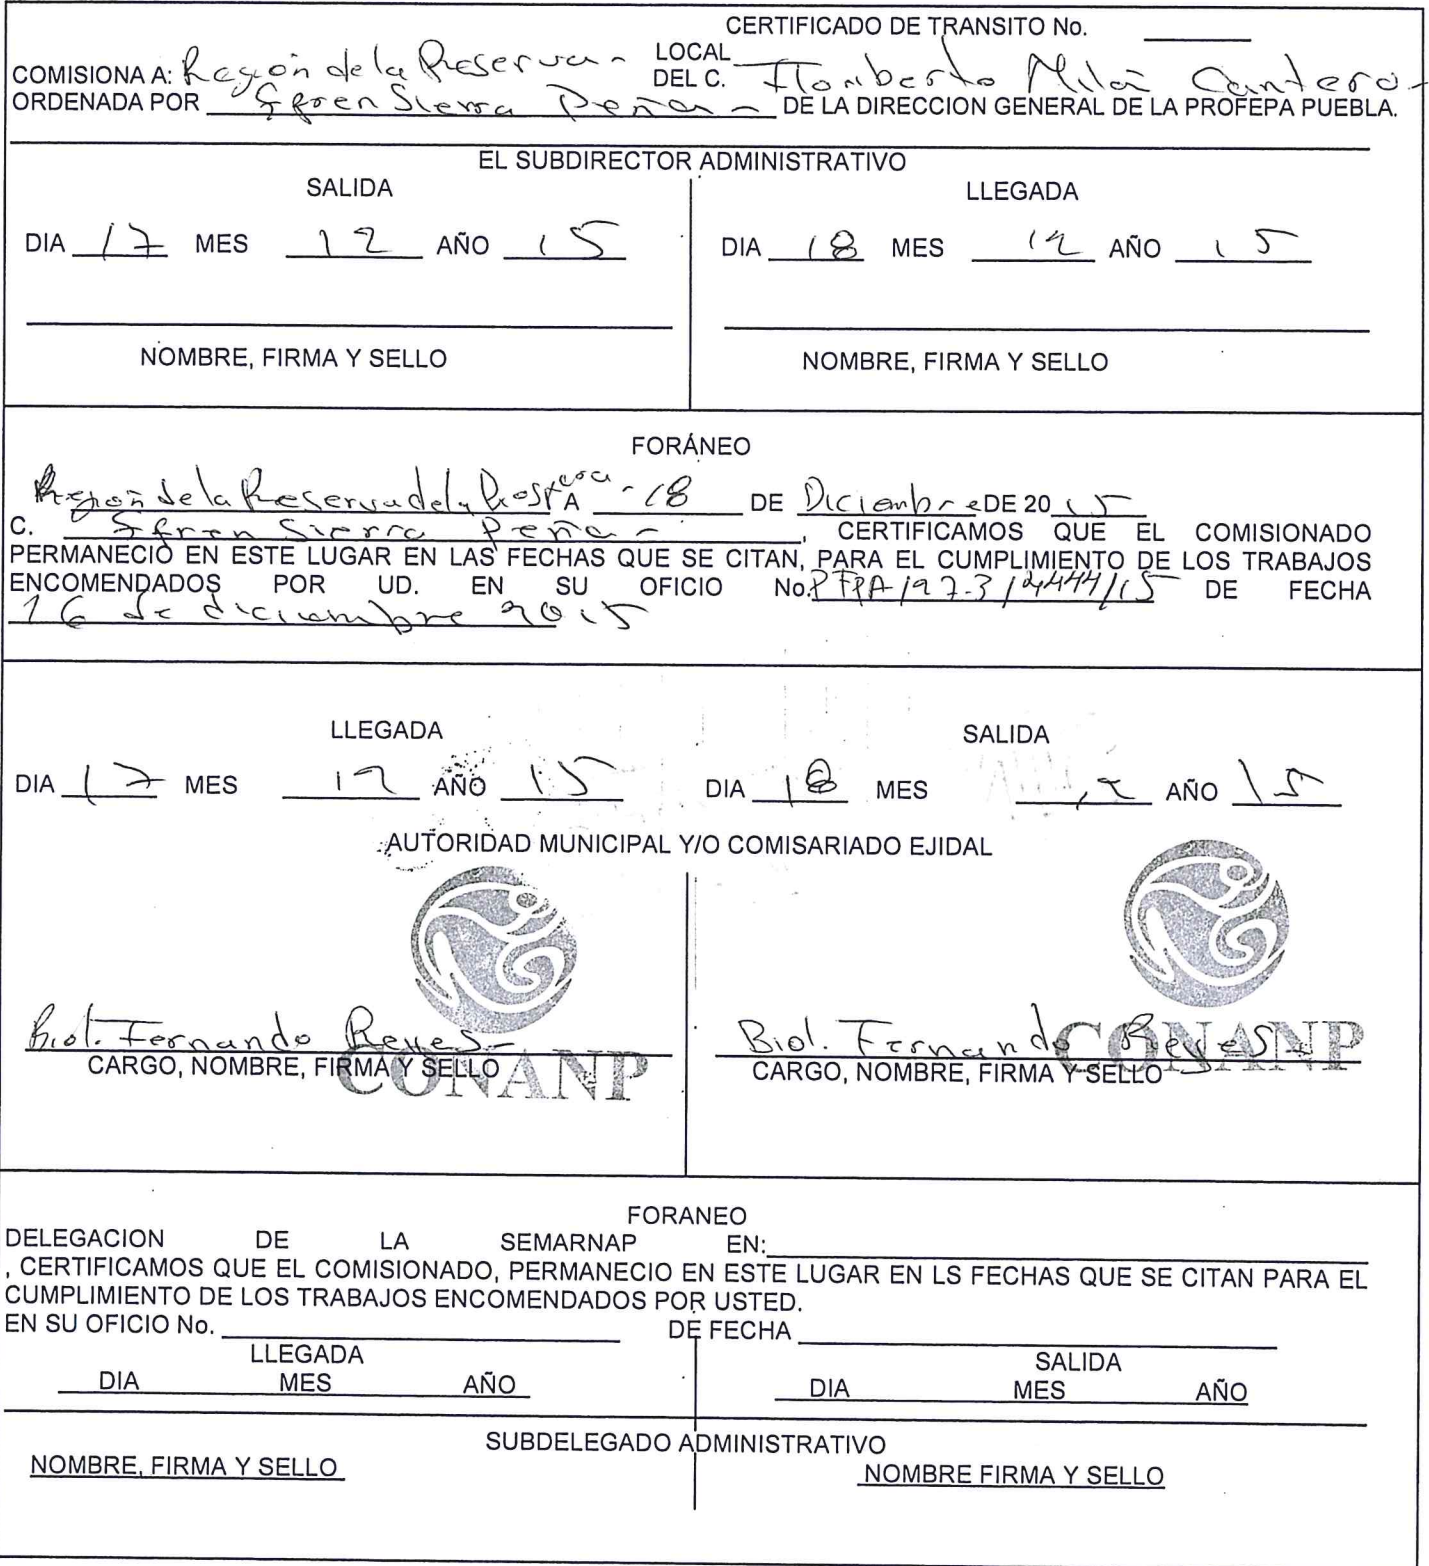 CERTIFICADO DE TRANSITO No.
LOCAL
COMISIONA A: Región de la Reserva - DEL C. Homberto Milá Cantero -
ORDENADA POR Efren Sierra Peña - DE LA DIRECCION GENERAL DE LA PROFEPA PUEBLA.
EL SUBDIRECTOR ADMINISTRATIVO
SALIDA LLEGADA
DIA 17 MES 12 AÑO 15 DIA 18 MES 12 AÑO 15
NOMBRE, FIRMA Y SELLO NOMBRE, FIRMA Y SELLO
FORÁNEO
Región de la Reserva de la A - 18 DE Diciembre DE 2015
C. Efren Sierra Peña -, CERTIFICAMOS QUE EL COMISIONADO
PERMANECIÓ EN ESTE LUGAR EN LAS FECHAS QUE SE CITAN, PARA EL CUMPLIMIENTO DE LOS TRABAJOS
ENCOMENDADOS POR UD. EN SU OFICIO No. PFPA/27.3/2444/15 DE FECHA
16 de diciembre 2015
LLEGADA SALIDA
DIA 17 MES 12 AÑO 15 DIA 18 MES 12 AÑO 15
AUTORIDAD MUNICIPAL Y/O COMISARIADO EJIDAL
Biol. Fernando Reyes - Biol. Fernando Reyes -
CARGO, NOMBRE, FIRMA Y SELLO CARGO, NOMBRE, FIRMA Y SELLO
CONANP CONANP
FORANEO
DELEGACION DE LA SEMARNAP EN:
, CERTIFICAMOS QUE EL COMISIONADO, PERMANECIO EN ESTE LUGAR EN LS FECHAS QUE SE CITAN PARA EL
CUMPLIMIENTO DE LOS TRABAJOS ENCOMENDADOS POR USTED.
EN SU OFICIO No. DE FECHA
LLEGADA SALIDA
DIA MES AÑO DIA MES AÑO
SUBDELEGADO ADMINISTRATIVO
NOMBRE, FIRMA Y SELLO NOMBRE FIRMA Y SELLO